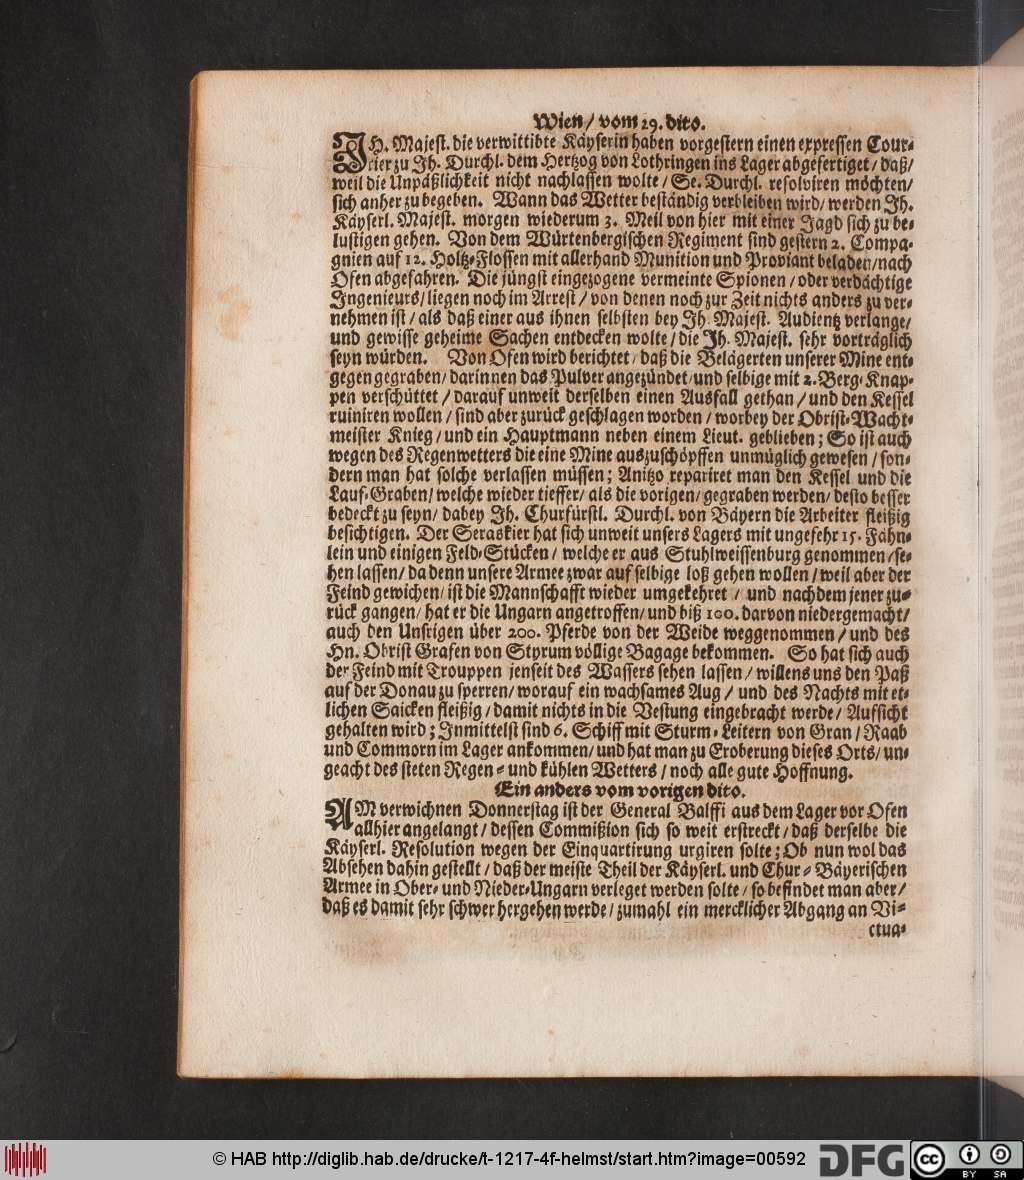 Wien/ vom 29. dito.
IH. Majest. die verwittibte Käyserin haben vorgestern einen expressen Cour-
rier zu Ih. Durchl. dem Hertzog von Lothringen ins Lager abgefertiget/ daß/
weil die Unpäßlichkeit nicht nachlassen wolte/ Se. Durchl. resolviren möchten/
sich anher zu begeben. Wann das Wetter beständig verbleiben wird/ werden Ih.
Käyserl. Majest. morgen wiederum 3. Meil von hier mit einer Jagd sich zu be-
lustigen gehen. Von dem Würtenbergischen Regiment sind gestern 2. Compa-
gnien auf 12. Holtz-Flossen mit allerhand Munition und Proviant beladen/ nach
Ofen abgefahren. Die jüngst eingezogene vermeinte Spionen/ oder verdächtige
Ingenieurs/ liegen noch im Arrest/ von denen noch zur Zeit nichts anders zu ver-
nehmen ist/ als daß einer aus ihnen selbsten bey Ih. Majest. Audientz verlange/
und gewisse geheime Sachen entdecken wolte/ die Ih. Majest. sehr vorträglich
seyn würden. Von Ofen wird berichtet/ daß die Belägerten unserer Mine ent-
gegen gegraben/ darinnen das Pulver angezündet/ und selbige mit 2. Berg-Knap-
pen verschüttet/ darauf unweit derselben einen Ausfall gethan/ und den Kessel
ruiniren wollen/ sind aber zurück geschlagen worden/ worbey der Obrist-Wacht-
meister Knieg/ und ein Hauptmann neben einem Lieut. geblieben; So ist auch
wegen des Regenwetters die eine Mine auszuschöpffen unmüglich gewesen/ son-
dern man hat solche verlassen müssen; Anitzo repariret man den Kessel und die
Lauf-Graben/ welche wieder tieffer/ als die vorigen/ gegraben werden/ desto besser
bedeckt zu seyn/ dabey Ih. Churfürstl. Durchl. von Bäyern die Arbeiter fleißig
besichtigen. Der Seraskier hat sich unweit unsers Lagers mit ungefehr 15. Fähn-
lein und einigen Feld-Stücken/ welche er aus Stuhlweissenburg genommen/ se-
hen lassen/ da denn unsere Armee zwar auf selbige loß gehen wollen/ weil aber der
Feind gewichen/ ist die Mannschafft wieder umgekehret/ und nachdem jener zu-
rück gangen/ hat er die Ungarn angetroffen/ und biß 100. darvon niedergemacht/
auch den Unsrigen über 200. Pferde von der Weide weggenommen/ und des
Hn. Obrist Grafen von Styrum völlige Bagage bekommen. So hat sich auch
der Feind mit Trouppen jenseit des Wassers sehen lassen/ willens uns den Paß
auf der Donau zu sperren/ worauf ein wachsames Aug/ und des Nachts mit et-
lichen Saicken fleißig/ damit nichts in die Vestung eingebracht werde/ Aufsicht
gehalten wird; Inmittelst sind 6. Schiff mit Sturm-Leitern von Gran/ Raab
und Commorn im Lager ankommen/ und hat man zu Eroberung dieses Orts/ un-
geacht des steten Regen- und kühlen Wetters/ noch alle gute Hoffnung.
Ein anders vom vorigen dito.
AM verwichnen Donnerstag ist der General Balffi aus dem Lager vor Ofen
allhier angelangt/ dessen Commißion sich so weit erstreckt/ daß derselbe die
Käyserl. Resolution wegen der Einquartirung urgiren solte; Ob nun wol das
Absehen dahin gestellt/ daß der meiste Theil der Käyserl. und Chur-Bäyerischen
Armee in Ober- und Nieder-Ungarn verleget werden solte/ so befindet man aber/
daß es damit sehr schwer hergehen werde/ zumahl ein mercklicher Abgang an Vi-
ctua-
© HAB http://diglib.hab.de/drucke/t-1217-4f-helmst/start.htm?image=00592
DFG
cc
BY SA